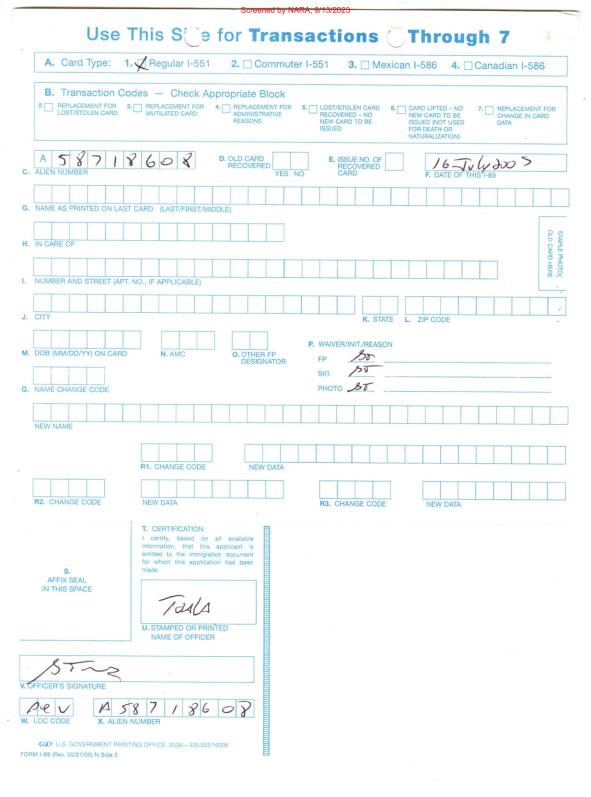 Screened by NARA, 9/13/2023
Use This S e for Transactions Through 7
A. Card Type: 1. Regular I-551 2. Commuter I-551 3. Mexican I-586 4. Canadian I-586
B. Transaction Codes — Check Appropriate Block
2. REPLACEMENT FOR LOST/STOLEN CARD 3. REPLACEMENT FOR MUTILATED CARD 4. REPLACEMENT FOR ADMINISTRATIVE REASONS 5. LOST/STOLEN CARD RECOVERED – NO NEW CARD TO BE ISSUED 6. CARD LIFTED – NO NEW CARD TO BE ISSUED (NOT USED FOR DEATH OR NATURALIZATION) 7. REPLACEMENT FOR CHANGE IN CARD DATA
A 58718608 D. OLD CARD RECOVERED YES NO E. ISSUE NO. OF RECOVERED CARD 16 July 2007
C. ALIEN NUMBER F. DATE OF THIS I-89
G. NAME AS PRINTED ON LAST CARD (LAST/FIRST/MIDDLE)
STAPLE PHOTO/
OLD CARD HERE
H. IN CARE OF
I. NUMBER AND STREET (APT. NO., IF APPLICABLE)
J. CITY K. STATE L. ZIP CODE
P. WAIVER/INIT./REASON
M. DOB (MM/DD/YY) ON CARD N. AMC O. OTHER FP DESIGNATOR
FP
SIG
PHOTO
Q. NAME CHANGE CODE
NEW NAME
R1. CHANGE CODE NEW DATA
R2. CHANGE CODE NEW DATA R3. CHANGE CODE NEW DATA
T. CERTIFICATION
I certify, based on all available
information, that this applicant is
entitled to the immigration document
for which this application has been
made.
S.
AFFIX SEAL
IN THIS SPACE
U. STAMPED OR PRINTED
NAME OF OFFICER
V. OFFICER'S SIGNATURE
A58718608
W. LOC CODE X. ALIEN NUMBER
GPO U.S. GOVERNMENT PRINTING OFFICE: 2006—325-553/16008
FORM I-89 (Rev. 05/27/05) N Side 2